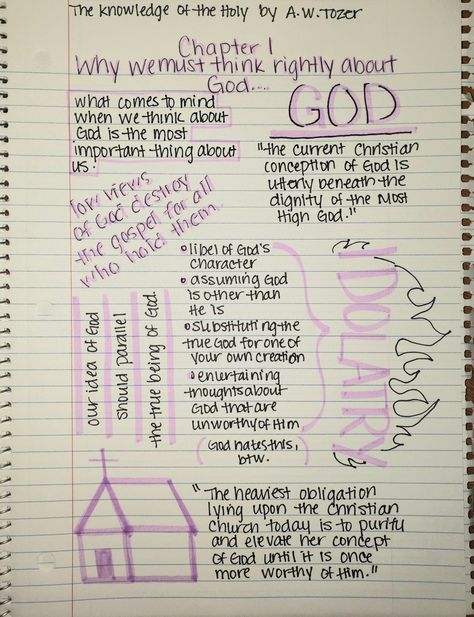 The Knowledge of the Holy by A.W. Tozer
Chapter 1
Why we must think rightly about
God...
what comes to mind
when we think about
God is the most
important thing about
us.
GOD
"the current Christian
conception of God is
utterly beneath the
dignity of the Most
High God."
low views
of God destroy
the gospel for all
who hold them.
libel of God's
character
assuming God
is other than
He is
substituting the
true God for one of
your own creation
entertaining
thoughts about
God that are
unworthy of Him
(God hates this,
btw.)
IDOLATRY
our idea of God
should parallel
the true being of God.
"The heaviest obligation
lying upon the Christian
Church today is to purify
and elevate her concept
of God until it is once
more worthy of Him."